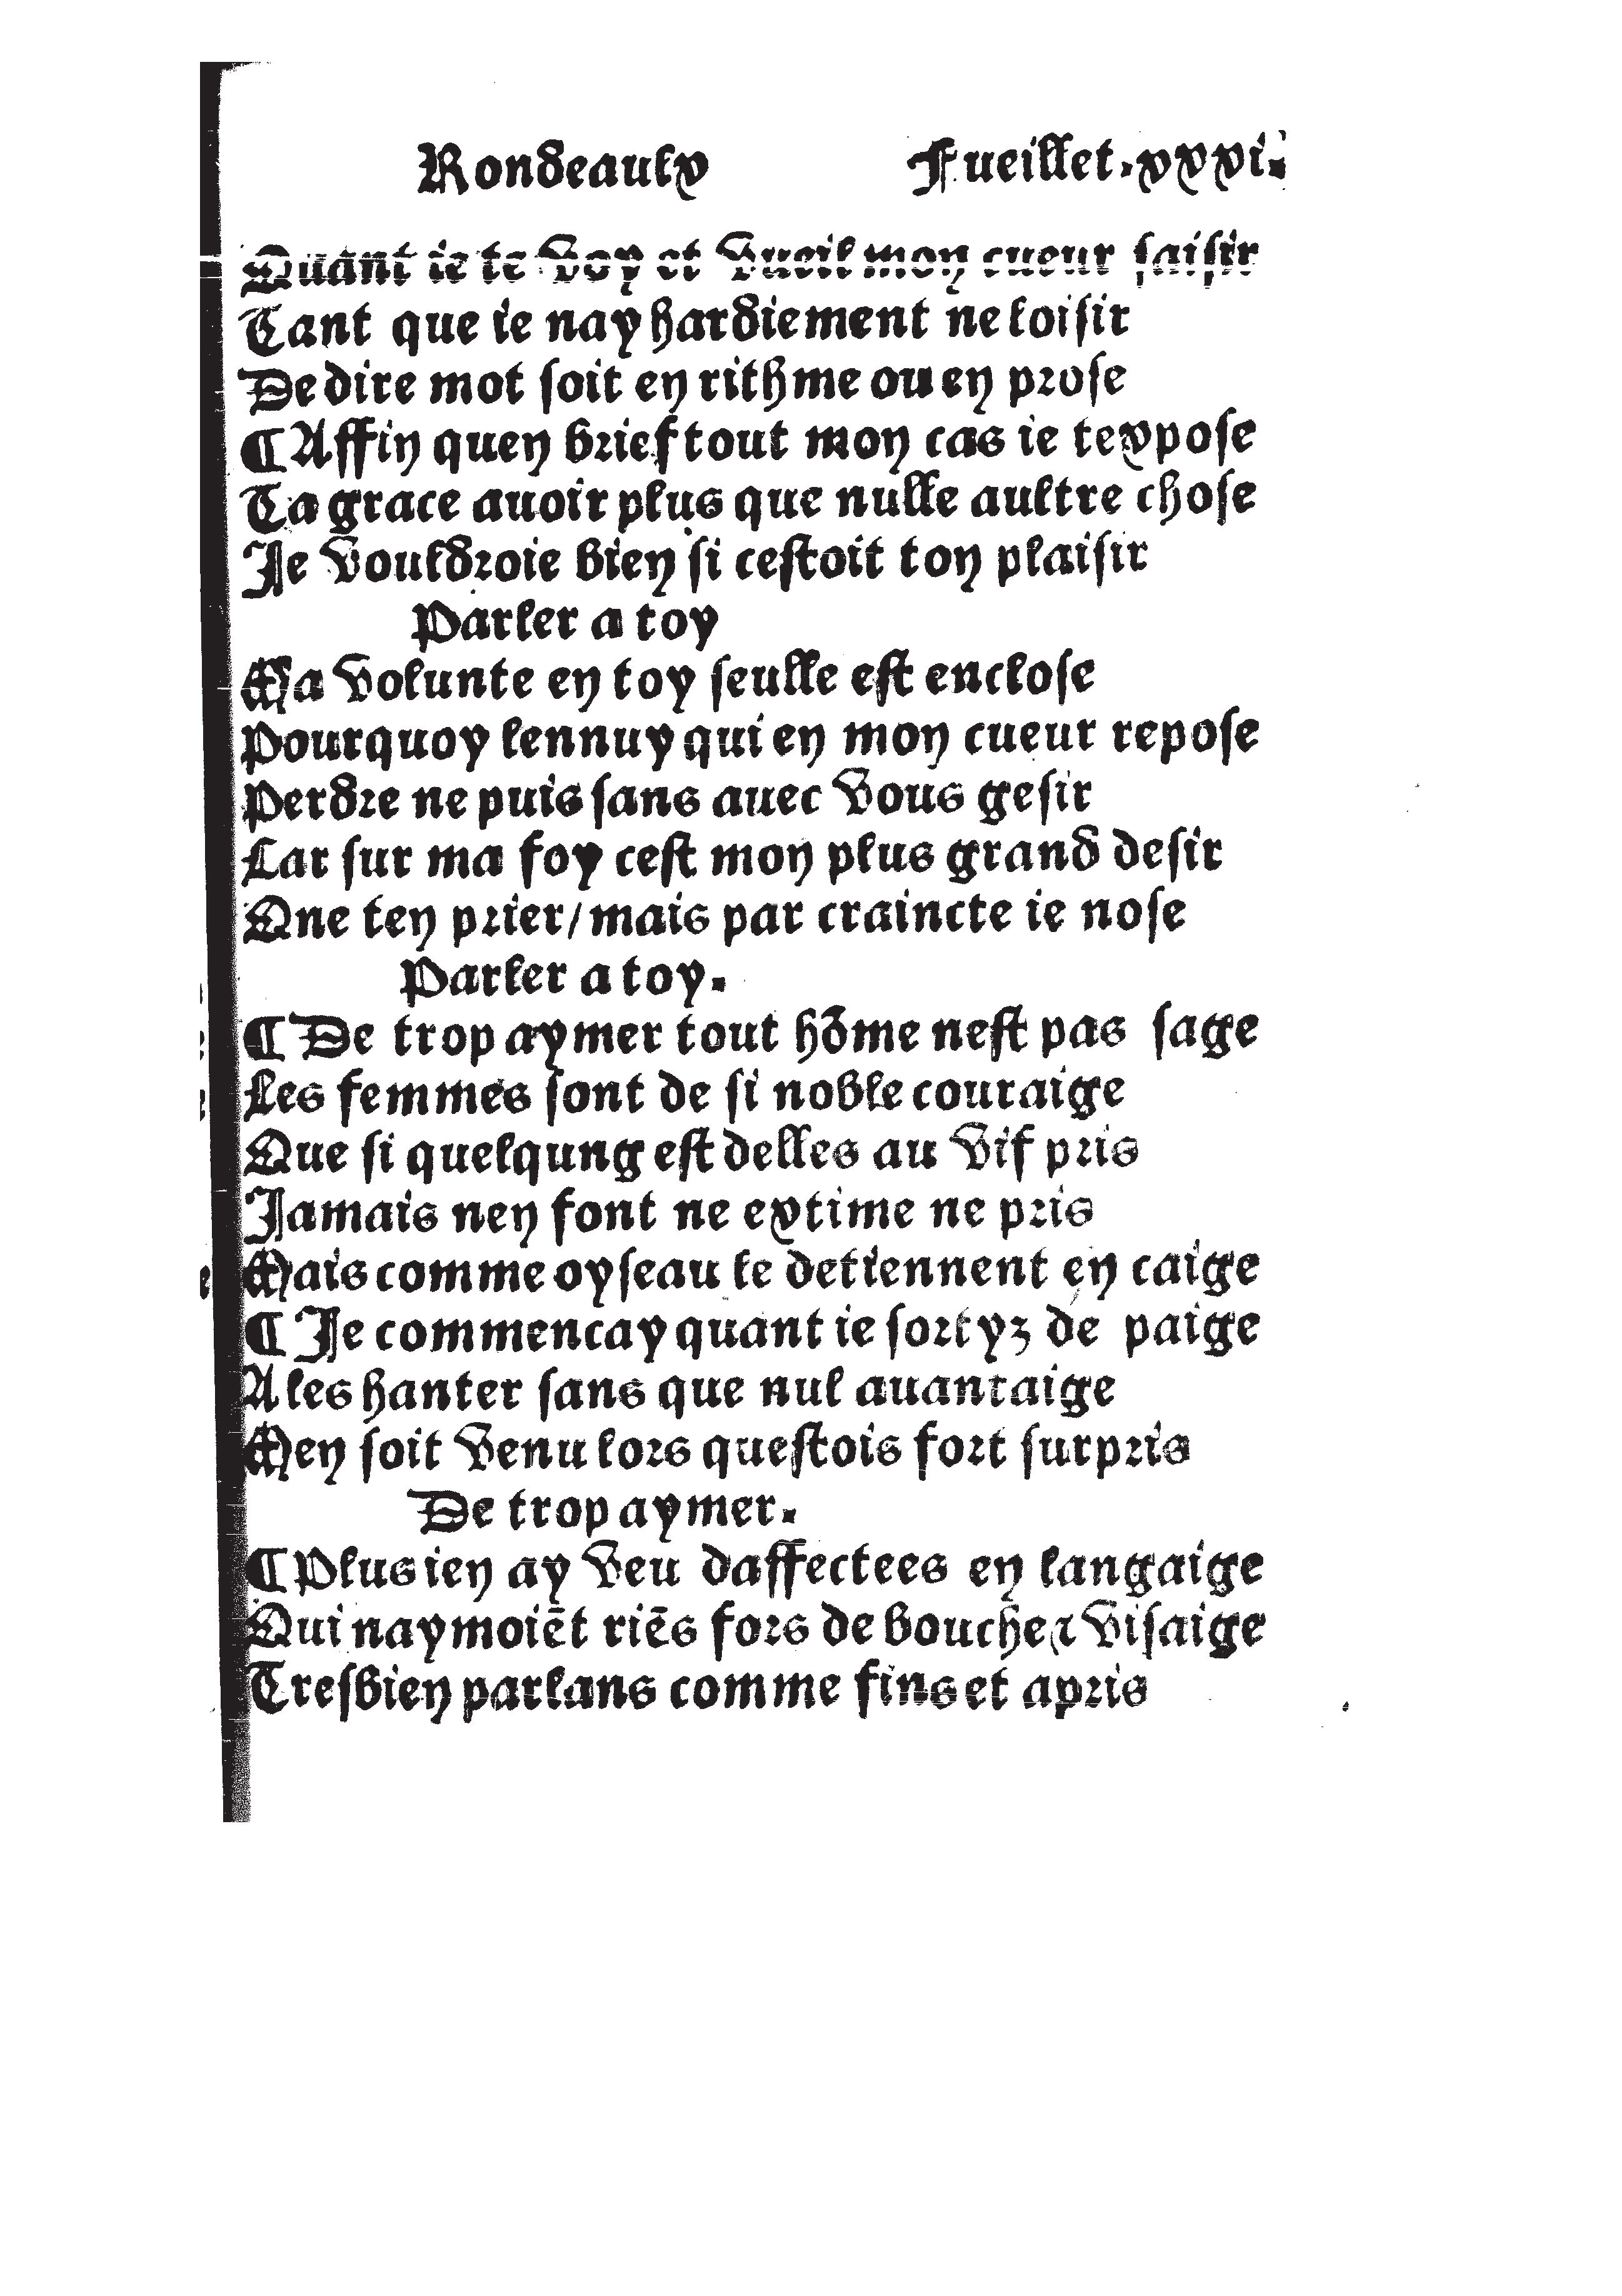 Rondeaulx Fueillet.xxxi.
Quant ie te voy et vueil mon cueur saisir
Tant que ie nay hardiement ne loisir
De dire mot soit en rithme ou en prose
¶ Affin quen brief tout mon cas ie texpose
Ta grace auoir plus que nulle aultre chose
Je vouldroie bien si cestoit ton plaisir
Parler a toy
Ma volunte en toy seulle est enclose
Pourquoy lennuy qui en mon cueur repose
Perdre ne puis sans auec vous gesir
Car sur ma foy cest mon plus grand desir
Que ten prier/mais par craincte ie nose
Parler a toy.
¶ De trop aymer tout hõme nest pas sage
Les femmes sont de si noble couraige
Que si quelqung est delles au vif pris
Jamais nen font ne extime ne pris
Mais comme oyseau le detiennent en caige
¶ Je commencay quant ie sortyz de paige
A les hanter sans que nul auantaige
Men soit venu lors questois fort surpris
De trop aymer.
¶ Plus ien ay veu daffectees en langaige
Qui naymoiẽt riẽs fors de bouche ⁊ visaige
Tresbien parlans comme fins et apris